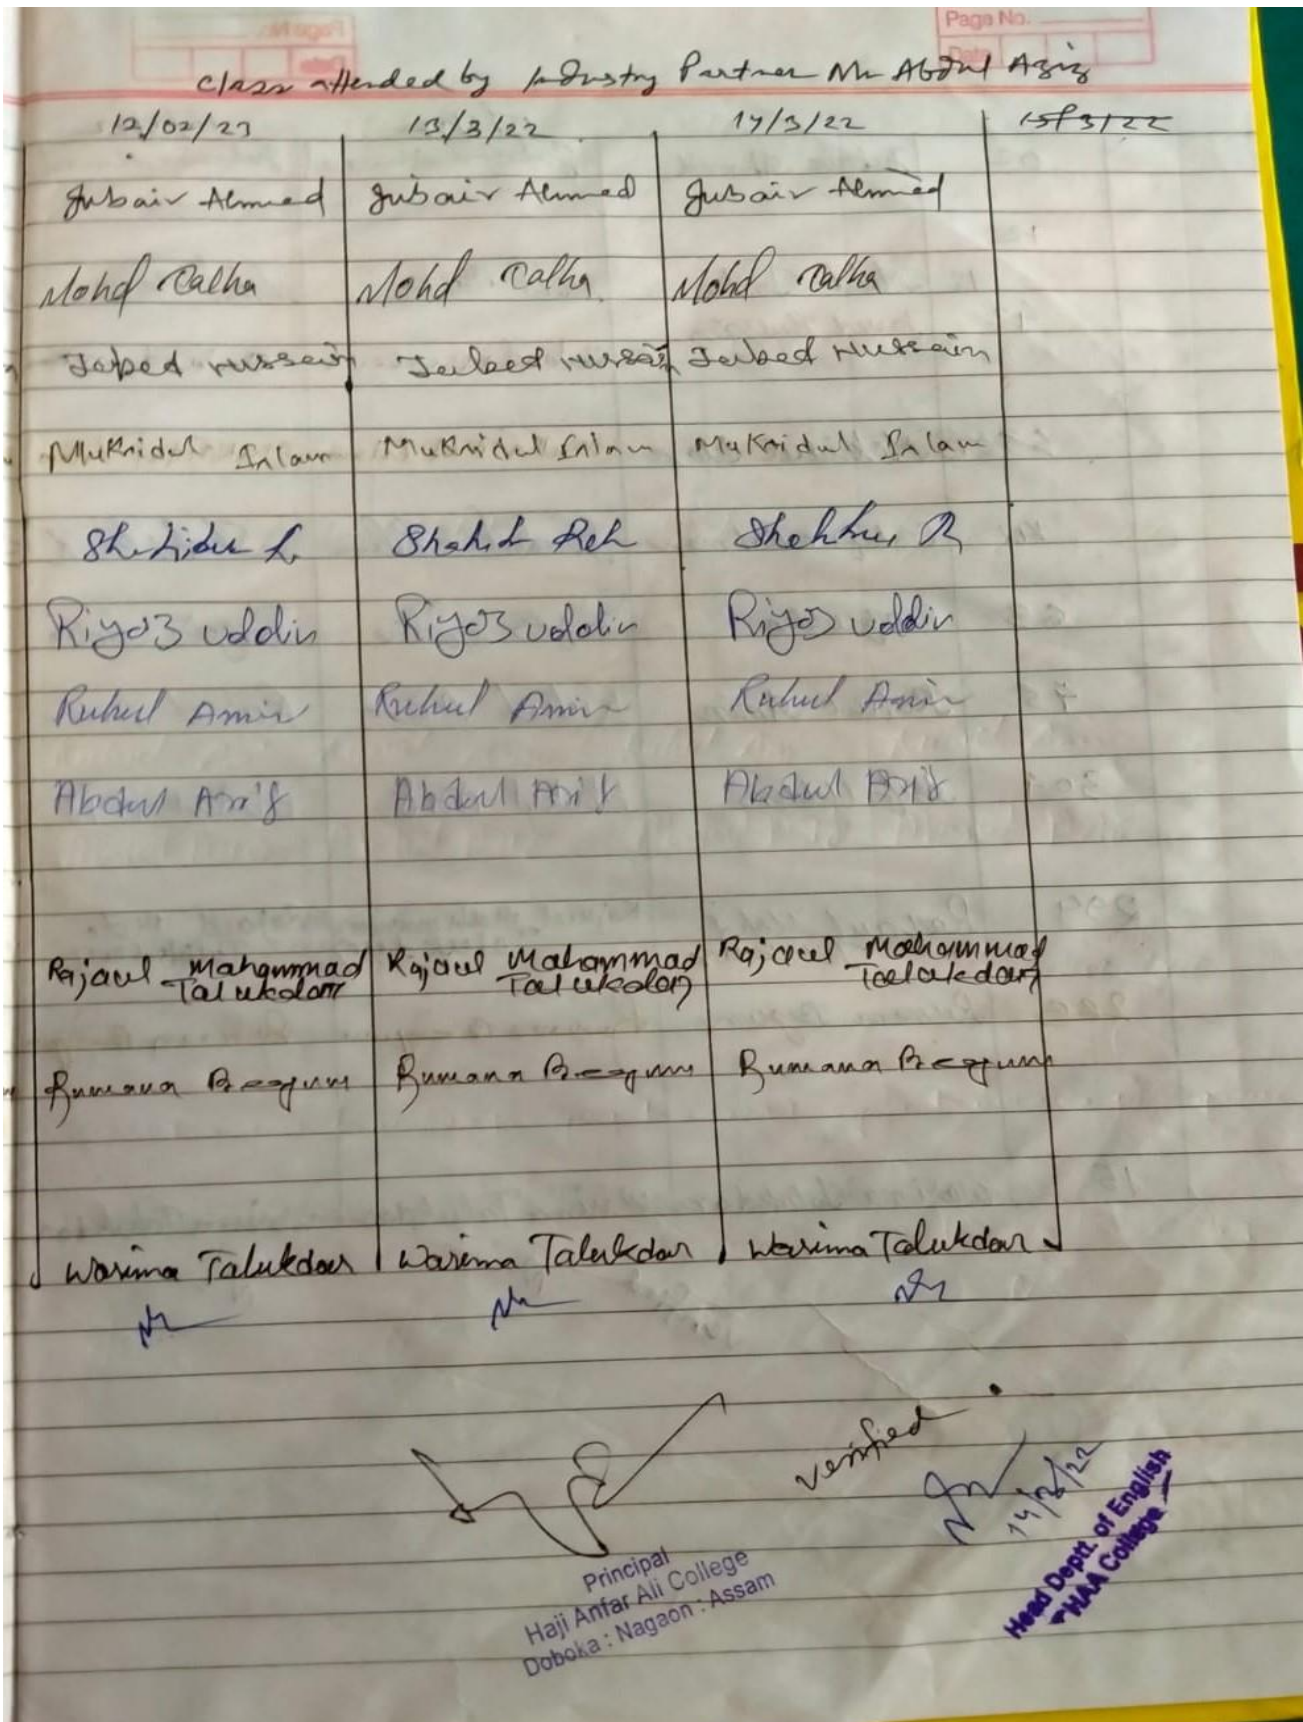 Page No.
Date
Class attended by Industry Partner Mr Abdul Aziz
12/02/23 13/3/22 14/3/22 15/3/22
Jubair Ahmed Jubair Ahmed Jubair Ahmed
Mohd Talha Mohd Talha Mohd Talha
Jabed Hussain Jabed Hussain Jabed Hussain
Mukhidul Islam Mukhidul Islam Mukhidul Islam
Riyaz uddin Riyaz uddin Riyaz uddin
Ruhul Amin Ruhul Amin Ruhul Amin
Abdul Aziz Abdul Aziz Abdul Aziz
Rajaul Mahammad Rajaul Mahammad Rajaul Mahammad
Talukdar Talukdar Talukdar
Rumana Begum Rumana Begum Rumana Begum
Warima Talukdar Warima Talukdar Warima Talukdar
verified
14/3/22
Principal
Haji Anfar Ali College
Doboka : Nagaon : Assam
Head Deptt. of English
HAA College